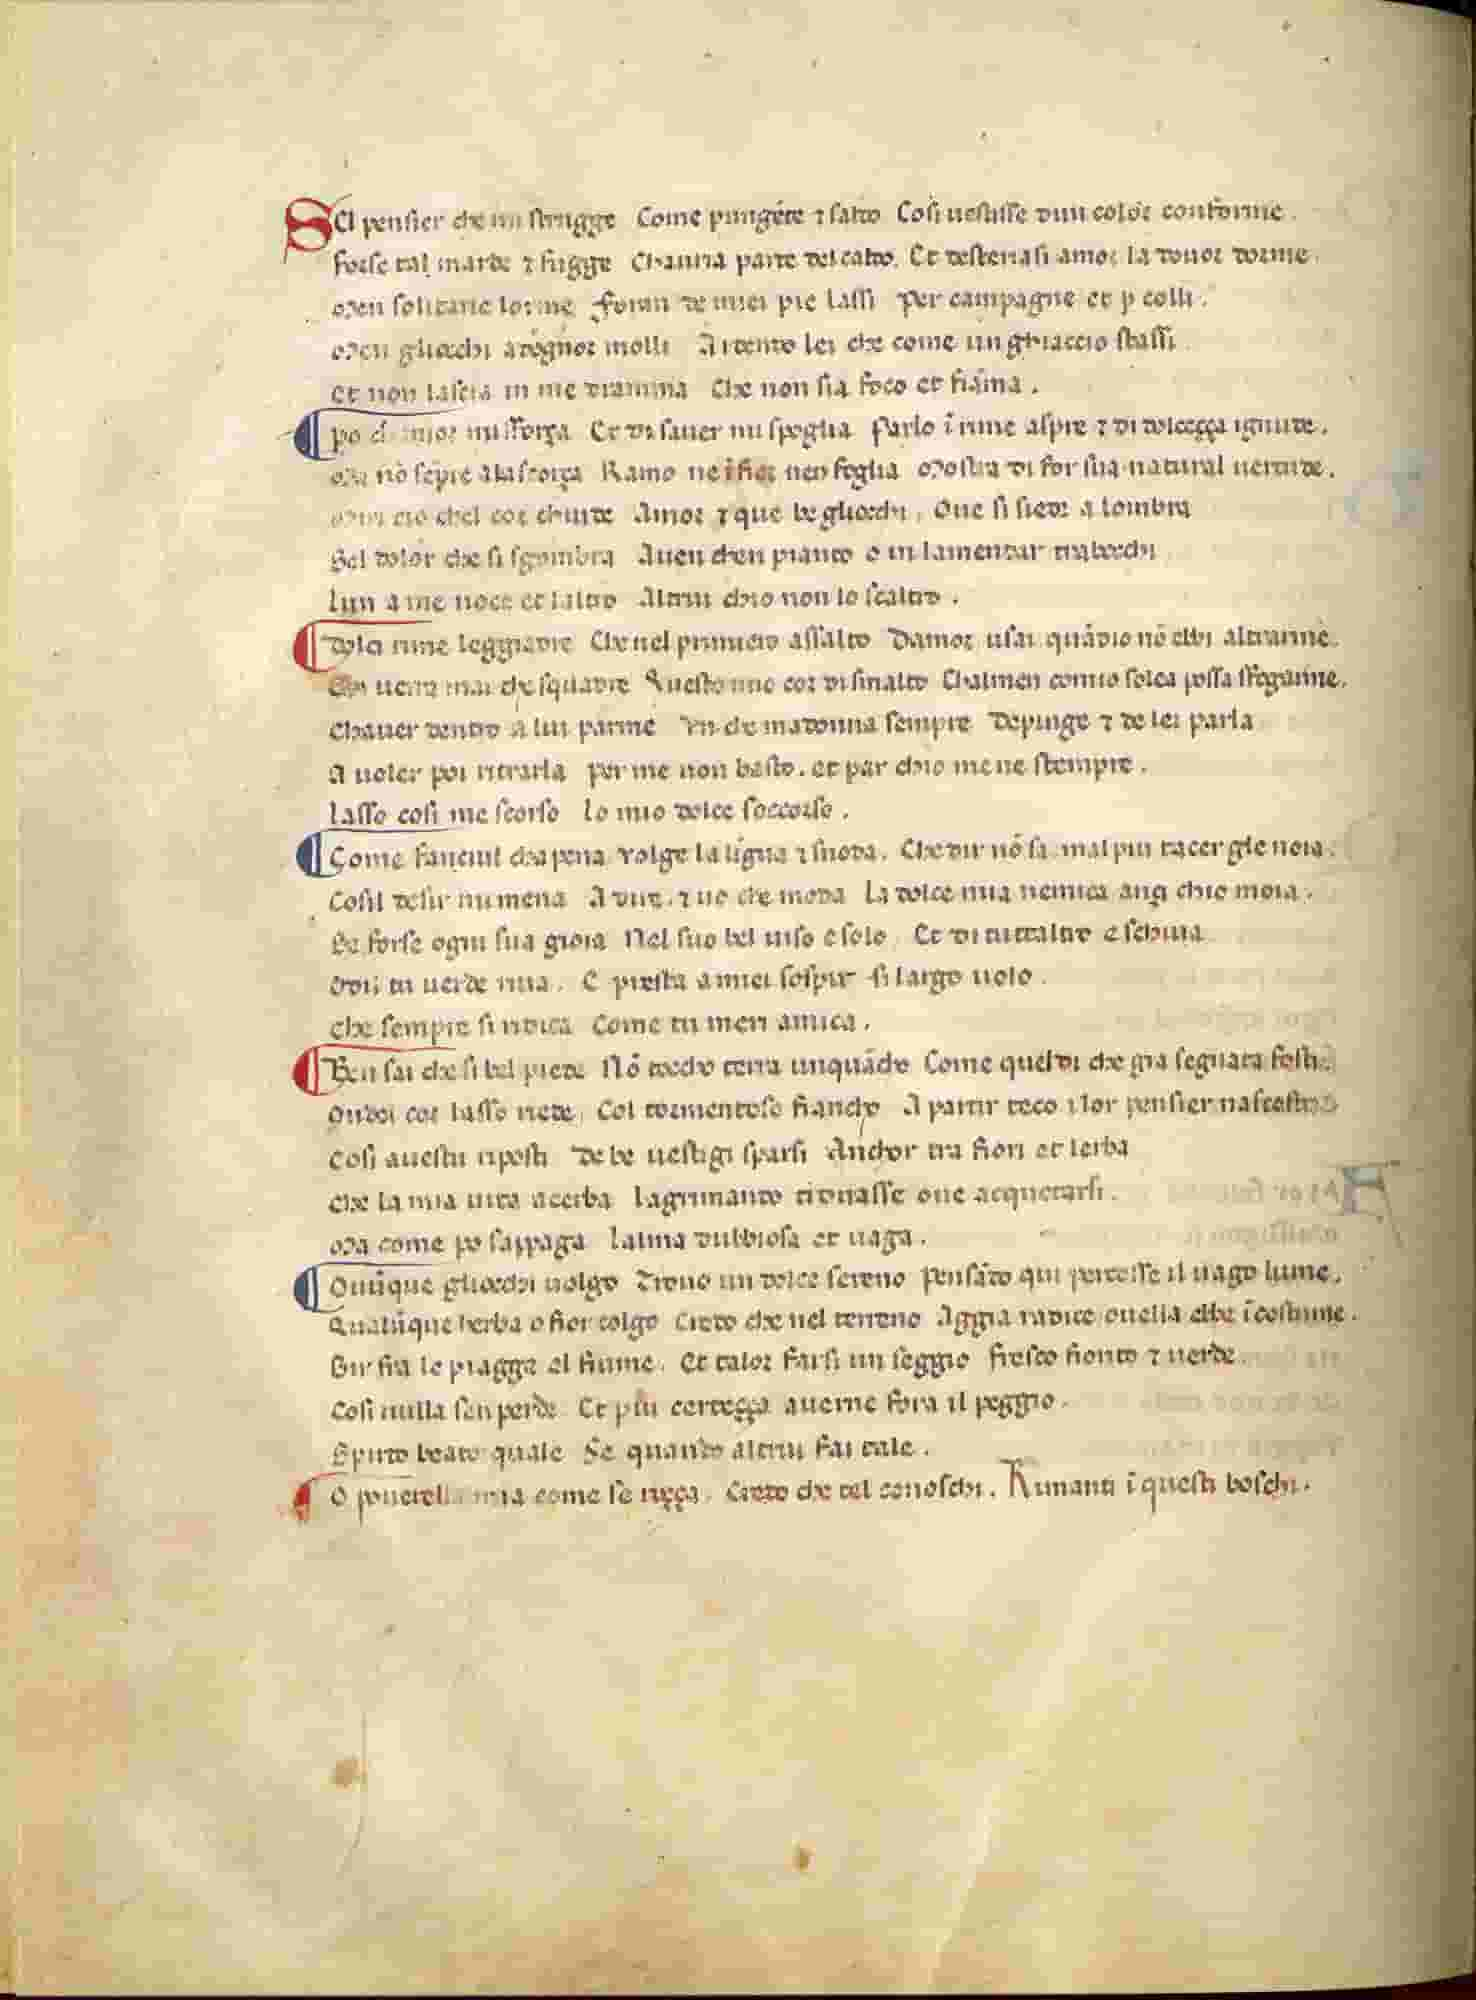 SEl pensier che mi strugge Come pungẽte ⁊ saldo Cosi uestisse dun color conforme.
Forse tal marde ⁊ fugge Chauria parte del caldo. Et desteriasi amor la douor dorme.
Men solitarie lorme Foran de miei pie lassi Per campagne et ꝑ colli.
Men gliocchi adõgnor molli Ardendo lei che come un ghiaccio stassi
Et non lascia in me dramma Che non sia foco et fiãma.
po chamor mi sforça Et di sauer mi spoglia Parlo ĩ rime aspre ⁊ di dolceçça ignude.
Ma nõ sẽpre a la scorça Ramo ne ĩ fior neo foglia Mostra di for sua natural uertude.
Miri cio chel cor chiude Amor ⁊ que begliocchi, Oue si siede a lombra
Sel dolor che si sgombra Auen chen pianto o in lamentar trabocchi
Lun a me noce et laltro Altrui chio non lo scaltro.
Dolci rime leggiadre Che nel primiero assalto Damor usai quãdio nõ ebbi altrarme.
Chi uerra mai che squadre Questo mio cor di smalto Chalmen comio solea possa sfogarme.
Chauer dentro a lui parme Vn che madonna sempre Depinge ⁊ de lei parla
A uoler poi ritrarla Per me non basto. et par chio me ne stempre.
Lasso cosi me scorso Lo mio dolce soccorso.
Come fanciul chapena Volge la lĩgua ⁊ snoda. Che dir nõ sa. mal piu tacer gle noia.
Cosil desir mi mena A dire. ⁊ uo che moda La dolce mia nemica anzi chio moia.
Se forse ogni sua gioia Nel suo bel uiso e solo. Et di tuttaltro e schiua
Odil tu uerde riua. E presta a miei sospir si largo uolo.
Che sempre si ridica Come tu meri amica.
Ben sai che si bel piede Nõ tocho terra unquãcho Come quel di che gia segnata fosti.
Ondel cor lasso riede Col tormentoso fiancho A partir teco i lor pensier nascosti.
Cosi auestu riposti De be uestigi sparsi Anchor tra fiori et lerba
Che la mia uita acerba Lagrimando trouasse oue acquetarsi.
Ma come po sappaga Lalma dubbiosa et uaga.
Ouũque gliocchi uolgo Trouo un dolce sereno Pensãdo qui percosse il uago lume.
Qualũque herba o fior colgo Credo che nel terreno Aggia radice ouella ebbe ĩ costume.
Gir fra le piagge el fiume. Et talor farsi un seggio Fresco fiorito ⁊ uerde.
Cosi nulla sen perde Et piu certeçça auerne fora il peggio.
Spirto beato quale Se quando altrui fai tale.
O pouerella mia come se roçça. Credo che tel conoschi. Rimanti ĩ questi boschi.